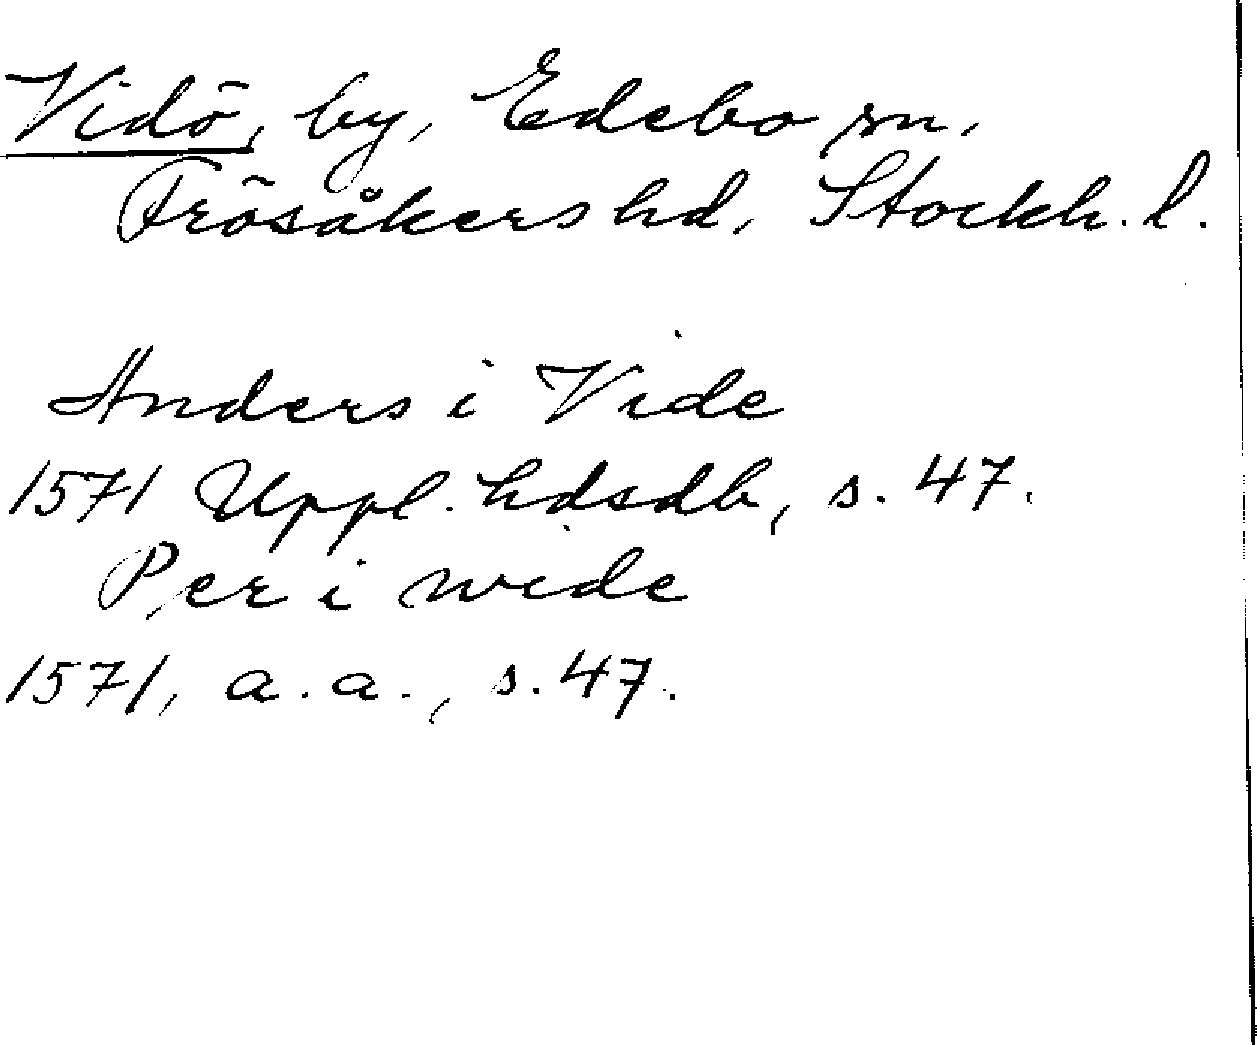 Vidö, by, Edebo sn,
Frösåkers hd, Stockh. l.
Anders i Vide
1571 Uppl. hdsdb, s. 47.
Per i wide
1571, a.a., s. 47.